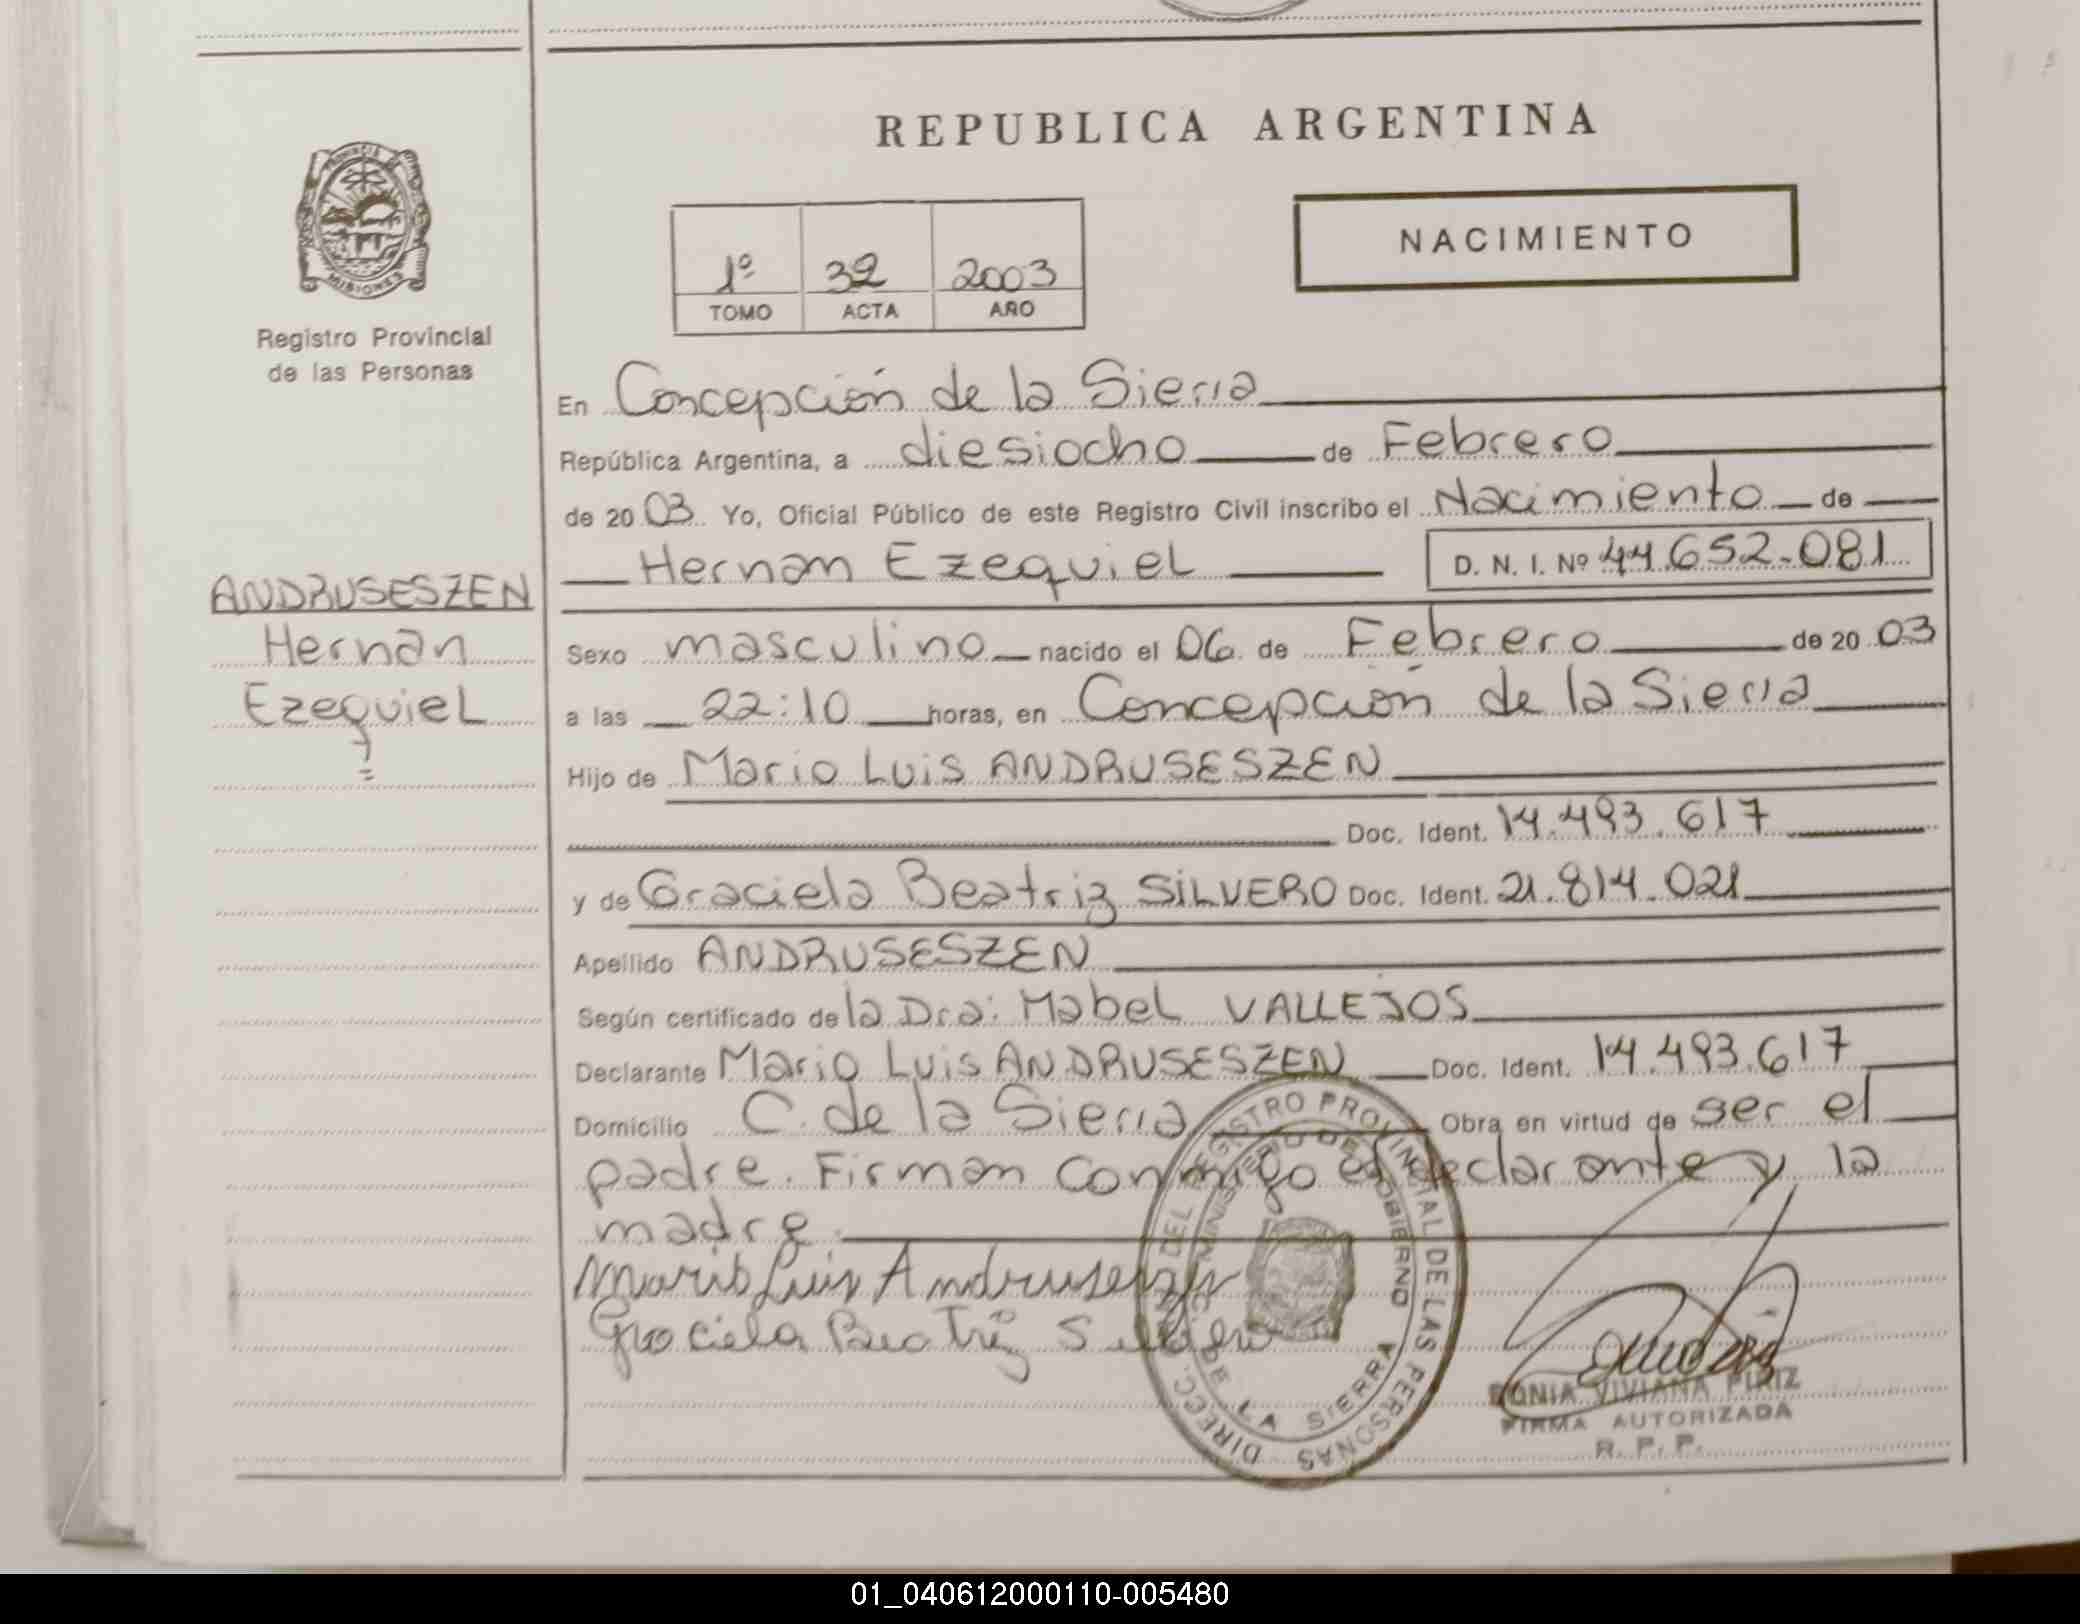 REPUBLICA ARGENTINA
PROVINCIA DE MISIONES
Registro Provincial
de las Personas
1º 32 2003
TOMO ACTA AÑO
NACIMIENTO
En Concepción de la Sierra
República Argentina, a diesiocho de Febrero
de 2003 Yo, Oficial Público de este Registro Civil inscribo el Nacimiento de
Hernan Ezequiel D. N. I. Nº 44.652.081
ANDRUSESZEN
Hernan
Ezequiel
Sexo masculino nacido el 06 de Febrero de 2003
a las 22:10 horas, en Concepción de la Sierra
Hijo de Mario Luis ANDRUSESZEN
Doc. Ident. 14.493.617
y de Graciela Beatriz SILVERO Doc. Ident. 21.814.021
Apellido ANDRUSESZEN
Según certificado de la Dra: Mabel VALLEJOS
Declarante Mario Luis ANDRUSESZEN Doc. Ident. 14.493.617
Domicilio C. de la Sierra Obra en virtud de ser el
padre. Firman conmigo el declarante y la
madre.
Mario Luis Andruseszen
Graciela Beatriz Silvero
DIRECC. GRAL. DEL REGISTRO PROVINCIAL DE LAS PERSONAS
MINISTERIO DE GOBIERNO
C. DE LA SIERRA
SONIA VIVIANA PIRIZ
FIRMA AUTORIZADA
R. P. P.
01_040612000110-005480